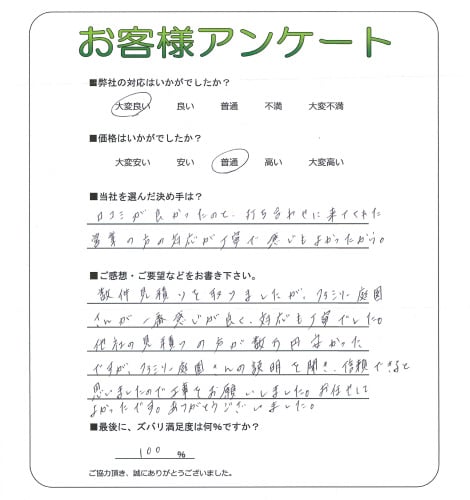 お客様アンケート
■弊社の対応はいかがでしたか?
大変良い 良い 普通 不満 大変不満
■価格はいかがでしたか?
大変安い 安い 普通 高い 大変高い
■当社を選んだ決め手は?
口コミが良かったので、打ち合わせに来てくれた
営業の方の対応が丁寧で感じもよかったから。
■ご感想・ご要望などをお書き下さい。
数件見積りを取りましたが、ファミリー庭園
さんが一番感じが良く、対応も丁寧でした。
他社の見積りの方が数万円安かった
ですが、ファミリー庭園さんの説明を聞き、信頼できると
思いましたので工事をお願いしました。お任せして
よかったです。ありがとうございました。
■最後に、ズバリ満足度は何%ですか?
100 %
ご協力頂き、誠にありがとうございました。